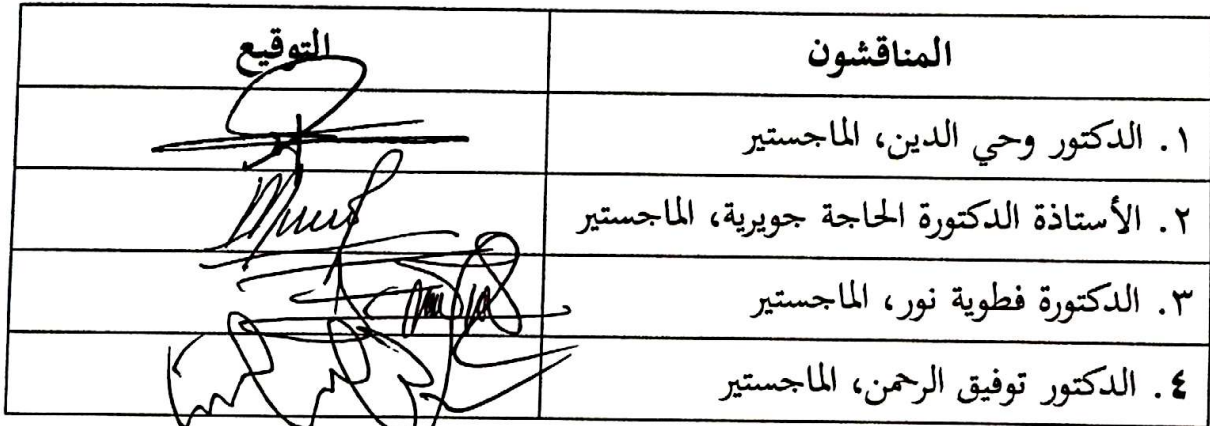 المناقشون التوقيع
١. الدكتور وحي الدين، الماجستير
٢. الأستاذة الدكتورة الحاجة جويرية، الماجستير
٣. الدكتورة فطوية نور، الماجستير
٤. الدكتور توفيق الرحمن، الماجستير